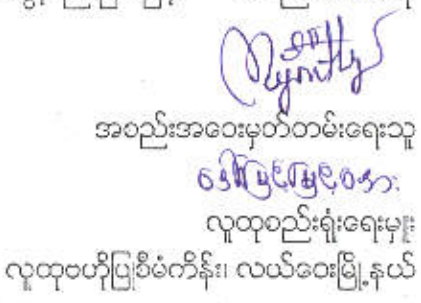 အစည်းအဝေးမှတ်တမ်းရေးသူ
ဒေါ်မြင့်မြင့်ဝေ
လူထုစည်းရုံးရေးမှူး
လူထုဗဟိုပြုစီမံကိန်း၊ လယ်ဝေးမြို့နယ်